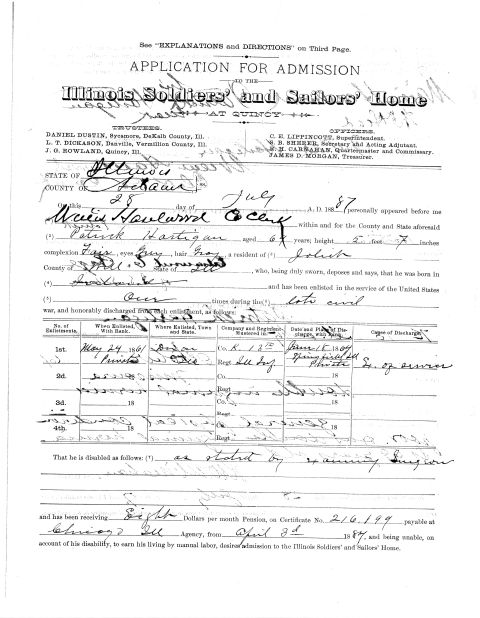 See "EXPLANATIONS and DIRECTIONS" on Third Page.
APPLICATION FOR ADMISSION
TO THE
Illinois Soldiers' and Sailors' Home
AT QUINCY
TRUSTEES.
DANIEL DUSTIN, Sycamore, DeKalb County, Ill.
L. T. DICKASON, Danville, Vermillion County, Ill.
J. G. ROWLAND, Quincy, Ill.
OFFICERS.
C. E. LIPPINCOTT, Superintendent.
S. B. SHERER, Secretary and Acting Adjutant.
E. H. CARNAHAN, Quartermaster and Commissary.
JAMES D. MORGAN, Treasurer.
STATE OF Illinois
COUNTY OF Adams ss.
On this 28 day of July A. D. 1887 personally appeared before me
Willis Haselwood Co Clerk within and for the County and State aforesaid
(2) Patrick Hartigan aged 6 years; height 5 feet 7 inches
complexion Fair, eyes Grey, hair Gray, a resident of (3) Joliet
County of Will State of Ill, who, being duly sworn, deposes and says, that he was born in
(4) and has been enlisted in the service of the United States
(5) One times during the (6) late civil
war, and honorably discharged from each enlistment, as follows:
No. of Enlistments. When Enlisted, With Rank. Where Enlisted, Town and State. Company and Regiment Mustered in. Date and Place of Discharge, with Rank. Cause of Discharge.
1st. May 24 1861 Dixon Co. K. 13th June 18 1864
Private Ill Regt Ill Inf Springfield Ill Private Ex of service
2d. 18 Co. Regt 18
3d. 18 Co. Regt 18
4th. 18 Co. Regt 18
That he is disabled as follows: (7) as stated by examining Surgeon
and has been receiving Eight Dollars per month Pension, on Certificate No. 216,199 payable at
Chicago Ill Agency, from April 3d 1887, and being unable, on
account of his disability, to earn his living by manual labor, desires admission to the Illinois Soldiers' and Sailors' Home.